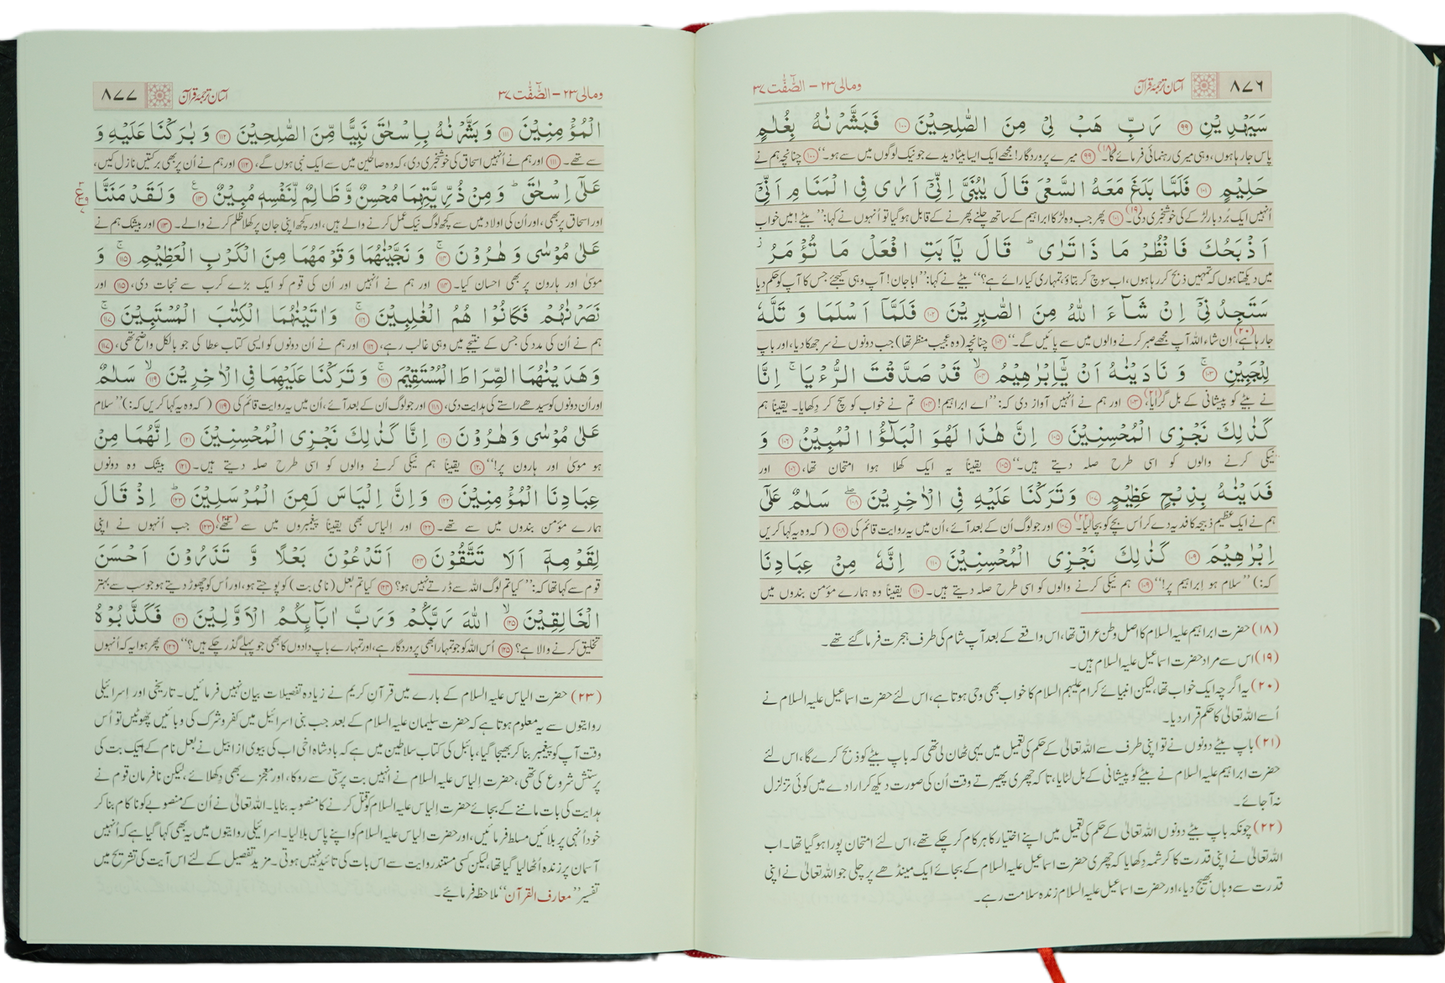 ۸۷۶ آسان ترجمۂ قرآن ومالی ۲۳ – الصّٰٓفّٰت ۳۷
سَيَهْدِيْنِ ۹۹ رَبِّ هَبْ لِيْ مِنَ الصّٰلِحِيْنَ ۱۰۰ فَبَشَّرْنٰهُ بِغُلٰمٍ
پاس جا رہا ہوں، وہی میری رہنمائی فرمائے گا۔(۱۸) ۹۹ میرے پروردگار! مجھے ایک ایسا بیٹا دیدے جو نیک لوگوں میں سے ہو۔“ ۱۰۰ چنانچہ ہم نے
حَلِيْمٍ ۱۰۱ فَلَمَّا بَلَغَ مَعَهُ السَّعْيَ قَالَ يٰبُنَيَّ اِنِّيْۤ اَرٰى فِي الْمَنَامِ اَنِّيْۤ
اُنہیں ایک بُردبار لڑکے کی خوشخبری دی۔(۱۹) ۱۰۱ پھر جب وہ لڑکا ابراہیم کے ساتھ چلنے پھرنے کے قابل ہو گیا تو اُنہوں نے کہا: ”بیٹے! میں خواب
اَذْبَحُكَ فَانْظُرْ مَا ذَا تَرٰى ؕ قَالَ يٰۤاَبَتِ افْعَلْ مَا تُؤْمَرُ ؗ
میں دیکھتا ہوں کہ تمہیں ذبح کر رہا ہوں، اب سوچ کر بتاؤ، تمہاری کیا رائے ہے؟“ بیٹے نے کہا: ”ابا جان! آپ وہی کیجئے جس کا آپ کو حکم دیا
سَتَجِدُنِيْۤ اِنْ شَآءَ اللّٰهُ مِنَ الصّٰبِرِيْنَ ۱۰۲ فَلَمَّاۤ اَسْلَمَا وَ تَلَّهٗ
جا رہا ہے،(۲۰) ان شاء اللہ آپ مجھے صبر کرنے والوں میں سے پائیں گے۔“ ۱۰۲ چنانچہ (وہ عجیب منظر تھا) جب دونوں نے سر جھکا دیا، اور باپ
لِلْجَبِيْنِ ۱۰۳ وَ نَادَيْنٰهُ اَنْ يّٰۤاِبْرٰهِيْمُ ۱۰۴ۙ قَدْ صَدَّقْتَ الرُّءْيَا ۚ اِنَّا
نے بیٹے کو پیشانی کے بل گرایا،(۲۱) ۱۰۳ اور ہم نے اُنہیں آواز دی کہ: ”اے ابراہیم! ۱۰۴ تم نے خواب کو سچ کر دِکھایا۔ یقیناً ہم
كَذٰلِكَ نَجْزِي الْمُحْسِنِيْنَ ۱۰۵ اِنَّ هٰذَا لَهُوَ الْبَلٰٓؤُا الْمُبِيْنُ ۱۰۶ وَ
نیکی کرنے والوں کو اسی طرح صلہ دیتے ہیں۔“ ۱۰۵ یقیناً یہ ایک کھلا ہوا امتحان تھا، ۱۰۶ اور
فَدَيْنٰهُ بِذِبْحٍ عَظِيْمٍ ۱۰۷ وَ تَرَكْنَا عَلَيْهِ فِي الْاٰخِرِيْنَ ۱۰۸ۖ سَلٰمٌ عَلٰۤى
ہم نے ایک عظیم ذبیحہ کا فدیہ دے کر اُس بچے کو بچا لیا۔(۲۲) ۱۰۷ اور جو لوگ اُن کے بعد آئے، اُن میں یہ روایت قائم کی ۱۰۸ ( کہ وہ یہ کہا کریں
اِبْرٰهِيْمَ ۱۰۹ كَذٰلِكَ نَجْزِي الْمُحْسِنِيْنَ ۱۱۰ اِنَّهٗ مِنْ عِبَادِنَا
کہ:) ”سلام ہو ابراہیم پر!“ ۱۰۹ ہم نیکی کرنے والوں کو اسی طرح صلہ دیتے ہیں۔ ۱۱۰ یقیناً وہ ہمارے مؤمن بندوں میں
(۱۸) حضرت ابراہیم علیہ السلام کا اصل وطن عراق تھا، اس واقعے کے بعد آپ شام کی طرف ہجرت فرما گئے تھے۔
(۱۹) اس سے مراد حضرت اسماعیل علیہ السلام ہیں۔
(۲۰) یہ اگرچہ ایک خواب تھا، لیکن انبیائے کرام علیہم السلام کا خواب بھی وحی ہوتا ہے، اس لئے حضرت اسماعیل علیہ السلام نے
اُسے اللہ تعالیٰ کا حکم قرار دیا۔
(۲۱) باپ بیٹے دونوں نے تو اپنی طرف سے اللہ تعالیٰ کے حکم کی تعمیل میں یہی ٹھان لی تھی کہ باپ بیٹے کو ذبح کرے گا، اس لئے
حضرت ابراہیم علیہ السلام نے بیٹے کو پیشانی کے بل لٹایا، تاکہ چھری پھیرتے وقت اُن کی صورت دیکھ کر ارادے میں کوئی تزلزل
نہ آجائے۔
(۲۲) چونکہ باپ بیٹے دونوں اللہ تعالیٰ کے حکم کی تعمیل میں اپنے اختیار کا ہر کام کر چکے تھے، اس لئے امتحان پورا ہو گیا تھا۔ اب
اللہ تعالیٰ نے اپنی قدرت کا کرشمہ دکھایا کہ چھری حضرت اسماعیل علیہ السلام کے بجائے ایک مینڈھے پر چلی جو اللہ تعالیٰ نے اپنی
قدرت سے وہاں بھیج دیا، اور حضرت اسماعیل علیہ السلام زندہ سلامت رہے۔
ومالی ۲۳ – الصّٰٓفّٰت ۳۷ آسان ترجمۂ قرآن ۸۷۷
الْمُؤْمِنِيْنَ ۱۱۱ وَ بَشَّرْنٰهُ بِاِسْحٰقَ نَبِيًّا مِّنَ الصّٰلِحِيْنَ ۱۱۲ وَ بٰرَكْنَا عَلَيْهِ وَ
سے تھے۔ ۱۱۱ اور ہم نے اُنہیں اسحاق کی خوشخبری دی، کہ وہ صالحین میں سے ایک نبی ہوں گے، ۱۱۲ اور ہم نے اُن پر بھی برکتیں نازل کیں،
عَلٰۤى اِسْحٰقَ ؕ وَ مِنْ ذُرِّيَّتِهِمَا مُحْسِنٌ وَّ ظَالِمٌ لِّنَفْسِهٖ مُبِيْنٌ ۱۱۳ وَ لَقَدْ مَنَنَّا
اور اسحاق پر بھی، اور اُن کی اولاد میں سے کچھ لوگ نیک عمل کرنے والے ہیں، اور کچھ اپنی جان پر کھلا ظلم کرنے والے۔ ۱۱۳ اور بیشک ہم نے
عَلٰى مُوْسٰى وَ هٰرُوْنَ ۱۱۴ۚ وَ نَجَّيْنٰهُمَا وَ قَوْمَهُمَا مِنَ الْكَرْبِ الْعَظِيْمِ ۱۱۵ۚ وَ
موسیٰ اور ہارون پر بھی احسان کیا۔ ۱۱۴ اور ہم نے اُنہیں اور اُن کی قوم کو ایک بڑے کرب سے نجات دی، ۱۱۵ اور
نَصَرْنٰهُمْ فَكَانُوْا هُمُ الْغٰلِبِيْنَ ۱۱۶ۚ وَ اٰتَيْنٰهُمَا الْكِتٰبَ الْمُسْتَبِيْنَ ۱۱۷ۚ
ہم نے اُن کی مدد کی جس کے نتیجے میں وہی غالب رہے، ۱۱۶ اور ہم نے اُن دونوں کو ایسی کتاب عطا کی جو بالکل واضح تھی، ۱۱۷
وَ هَدَيْنٰهُمَا الصِّرَاطَ الْمُسْتَقِيْمَ ۱۱۸ۚ وَ تَرَكْنَا عَلَيْهِمَا فِي الْاٰخِرِيْنَ ۱۱۹ۙ سَلٰمٌ
اور اُن دونوں کو سیدھے راستے کی ہدایت دی، ۱۱۸ اور جو لوگ اُن کے بعد آئے، اُن میں یہ روایت قائم کی ۱۱۹ ( کہ وہ یہ کہا کریں کہ:) ”سلام
عَلٰى مُوْسٰى وَ هٰرُوْنَ ۱۲۰ اِنَّا كَذٰلِكَ نَجْزِي الْمُحْسِنِيْنَ ۱۲۱ اِنَّهُمَا مِنْ
ہو موسیٰ اور ہارون پر!“ ۱۲۰ یقیناً ہم نیکی کرنے والوں کو اسی طرح صلہ دیتے ہیں۔ ۱۲۱ بیشک وہ دونوں
عِبَادِنَا الْمُؤْمِنِيْنَ ۱۲۲ وَ اِنَّ اِلْيَاسَ لَمِنَ الْمُرْسَلِيْنَ ۱۲۳ؕ اِذْ قَالَ
ہمارے مؤمن بندوں میں سے تھے۔ ۱۲۲ اور الیاس بھی یقیناً پیغمبروں میں سے تھے،(۲۳) ۱۲۳ جب اُنہوں نے اپنی
لِقَوْمِهٖۤ اَلَا تَتَّقُوْنَ ۱۲۴ اَتَدْعُوْنَ بَعْلًا وَّ تَذَرُوْنَ اَحْسَنَ
قوم سے کہا تھا کہ: ”کیا تم لوگ اللہ سے ڈرتے نہیں ہو؟ ۱۲۴ کیا تم بعل (نامی بت) کو پوجتے ہو، اور اُس کو چھوڑ دیتے ہو جو سب سے بہتر
الْخَالِقِيْنَ ۱۲۵ۙ اللّٰهَ رَبَّكُمْ وَ رَبَّ اٰبَآئِكُمُ الْاَوَّلِيْنَ ۱۲۶ فَكَذَّبُوْهُ
تخلیق کرنے والا ہے؟ ۱۲۵ اُس اللہ کو جو تمہارا بھی پروردگار ہے، اور تمہارے باپ دادوں کا بھی جو پہلے گذر چکے ہیں؟“ ۱۲۶ پھر ہوا یہ کہ اُنہوں
(۲۳) حضرت الیاس علیہ السلام کے بارے میں قرآنِ کریم نے زیادہ تفصیلات بیان نہیں فرمائیں۔ تاریخی اور اسرائیلی
روایتوں سے یہ معلوم ہوتا ہے کہ حضرت سلیمان علیہ السلام کے بعد جب بنی اسرائیل میں کفر و شرک کی وبائیں پھوٹیں تو اُس
وقت آپ کو پیغمبر بنا کر بھیجا گیا، بائبل کی کتاب سلاطین میں ہے کہ بادشاہ اخی اب کی بیوی ازابیل نے بعل نام کے ایک بت کی
پرستش شروع کی تھی، حضرت الیاس علیہ السلام نے انہیں بت پرستی سے روکا، اور معجزے بھی دِکھلائے، لیکن نافرمان قوم نے
ہدایت کی بات ماننے کے بجائے حضرت الیاس علیہ السلام کو قتل کرنے کا منصوبہ بنایا۔ اللہ تعالیٰ نے اُن کے منصوبے کو ناکام بنا کر
خود اُنہی پر بلائیں مسلط فرمائیں، اور حضرت الیاس علیہ السلام کو اپنے پاس بلا لیا۔ اسرائیلی روایتوں میں یہ بھی کہا گیا ہے کہ اُنہیں
آسمان پر زندہ اُٹھا لیا گیا تھا، لیکن کسی مستند روایت سے اس بات کی تائید نہیں ہوتی۔ مزید تفصیل کے لئے اس آیت کی تشریح میں
تفسیر ”معارف القرآن“ ملاحظہ فرمائیے۔